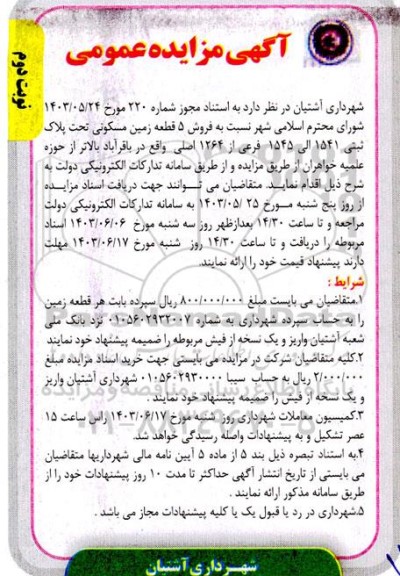 آگهی مزایده عمومی
نوبت دوم
شهرداری آشتیان در نظر دارد به استناد مجوز شماره ۲۲۰ مورخ ۱۴۰۳/۰۵/۲۴
شورای محترم اسلامی شهر نسبت به فروش ۵ قطعه زمین مسکونی تحت پلاک
ثبتی ۱۵۴۱ الی ۱۵۴۵ فرعی از ۱۲۶۴ اصلی واقع در باقرآباد بالاتر از حوزه
علمیه خواهران از طریق مزایده و از طریق سامانه تدارکات الکترونیکی دولت به
شرح ذیل اقدام نماید. متقاضیان می توانند جهت دریافت اسناد مزایده
از روز پنج شنبه مورخ ۲۵ /۱۴۰۳/۰۵ به سامانه تدارکات الکترونیکی دولت
مراجعه و تا ساعت ۱۴/۳۰ بعدازظهر روز سه شنبه مورخ ۱۴۰۳/۰۶/۰۶ اسناد
مربوطه را دریافت و تا ساعت ۱۴/۳۰ روز شنبه مورخ ۱۴۰۳/۰۶/۱۷ مهلت
دارند پیشنهاد قیمت خود را ارائه نمایند.
شرایط :
۱.متقاضیان می بایست مبلغ ۸۰۰/۰۰۰/۰۰۰ ریال سپرده بابت هر قطعه زمین
را به حساب سپرده شهرداری به شماره ۰۱۰۵۶۰۲۹۳۳۰۰۷ نزد بانک ملی
شعبه آشتیان واریز و یک نسخه از فیش مربوطه را ضمیمه پیشنهاد خود نمایند
۲.کلیه متقاضیان شرکت در مزایده می بایستی جهت خرید اسناد مزایده مبلغ
۲/۰۰۰/۰۰۰ ریال به حساب سیبا ۰۱۰۵۶۰۲۹۳۰۰۰۰ شهرداری آشتیان واریز
و یک نسخه از فیش را ضمیمه پیشنهاد خود نمایند.
۳.کمیسیون معاملات شهرداری روز شنبه مورخ ۱۴۰۳/۰۶/۱۷ راس ساعت ۱۵
عصر تشکیل و به پیشنهادات واصله رسیدگی خواهد شد.
۴.به استناد تبصره ذیل بند ۵ از ماده ۵ آیین نامه مالی شهرداریها متقاضیان
می بایستی از تاریخ انتشار آگهی حداکثر تا مدت ۱۰ روز پیشنهادات خود را از
طریق سامانه مذکور ارائه نمایند .
۵.شهرداری در رد یا قبول یک یا کلیه پیشنهادات مجاز می باشد .
شهرداری آشتیان